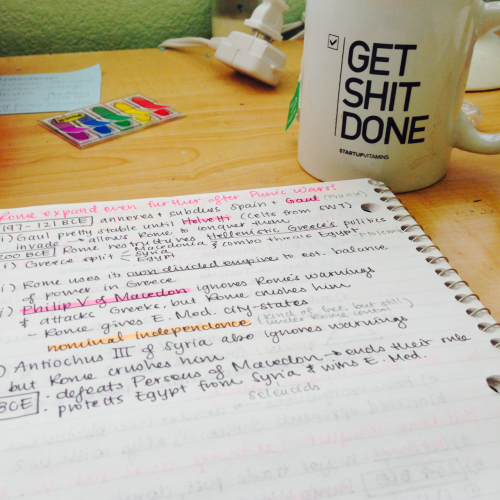 GET
SHIT
DONE
STARTUPVITAMINS
Rome expand even further after Punic Wars!
197-121 BCE annexes + subdues Spain + Gaul
i) Gaul pretty stable until Helvetii (Celts from SWT)
invade → allows Rome to conquer them
200 BCE Rome restructures Hellenistic Greece's politics
i) Greece split Macedonia combo threats Egypt
Syria
Egypt
i) Rome uses its own divided empire to est. balance
of power in Greece
i) Philip V of Macedon ignores Rome's warnings
& attacks Greece, but Rome crushes him
- Rome gives E. Med. city-states
nominal independence (kind of free, but still
under Rome control)
) Antiochus III of Syria also ignores warnings
but Rome crushes him
BCE : defeats Perseus of Macedon → ends their rule
: protects Egypt from Syria & wins E. Med.
Seleucids